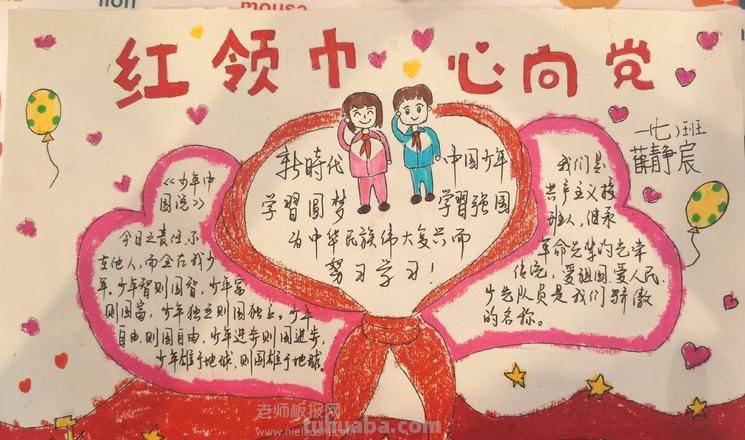 lion
mouse
红领巾 心向党
一(七)班
薛静宸
《少年中
国说》
今日之责任,不
在他人,而全在我少
年。少年智则国智,少年富
则国富,少年独立则国独立,少年
自由,则国自由,少年进步则国进步,
少年雄于地球,则国雄于地球,
新時代 中国少年
学習圆梦 学習强国
为中华民族伟大复兴而
努力学习!
我们是
共产主义接
班人,继承
革命先辈的光荣
传统,爱祖国,爱人民,
少先队员是我们骄傲
的名称。
老师板报网
tuhuaba.com